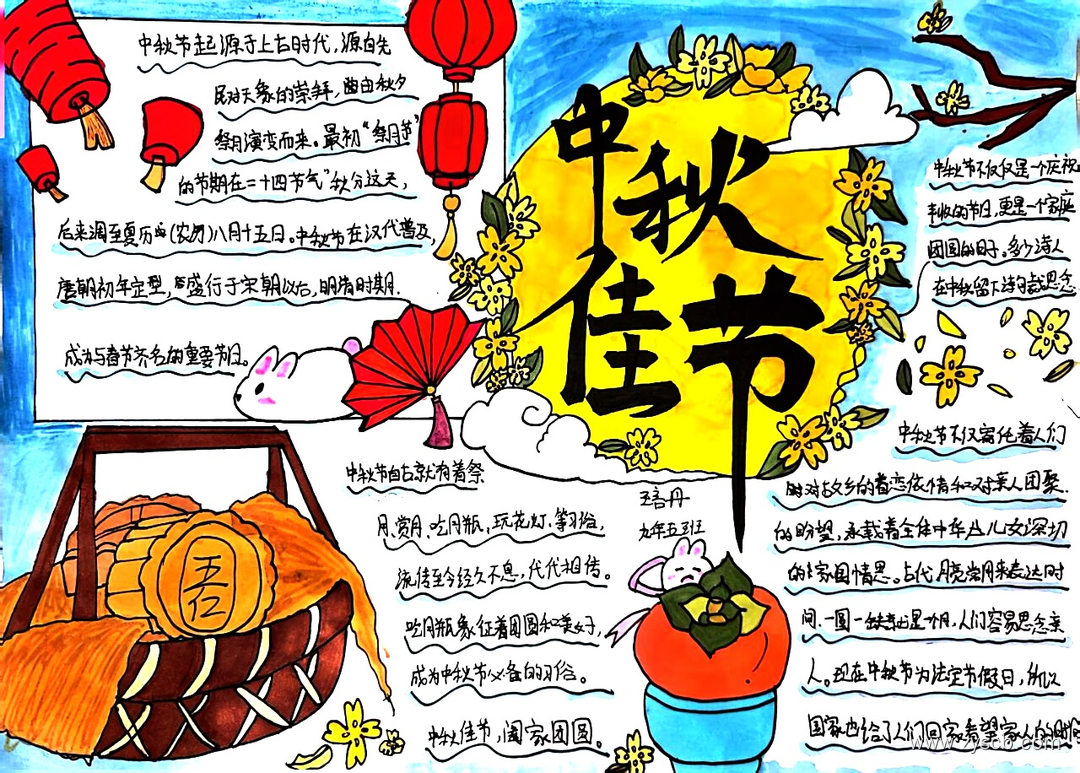 中秋佳节
中秋节起源于上古时代，源自先
民对天象的崇拜，由秋夕
祭月演变而来。最初“祭月节”
的节期在二十四节气“秋分这天，
后来调至夏历(农历)八月十五日。中秋节在汉代普及，
唐朝初年定型，盛行于宋朝以后，明清时期.
成为与春节齐名的重要节日。
中秋节不仅仅是一个庆祝
丰收的节日，更是一个家庭
团圆的日子。多少诗人
在中秋留下诗词裁思念
中秋节不仅寄托着人们
时对故乡的眷恋依情和对亲人团聚
的盼望，承载着全体中华儿女深切
的家国情思。古代月亮常用来表达时
间.一圆一缺就是个月，人们容易思念亲
人。现在中秋节为法定节假日，所以
国家也给了人们回家看望家人的时间
中秋节自古就有着祭
月、赏月、吃月瓶，玩花灯.等习俗，
流传至今经久不息，代代相传。
吃月瓶象征着团圆和美好，
成为中秋节必备的习俗。
中秋佳节，阖家团圆。
九年五班
五仁